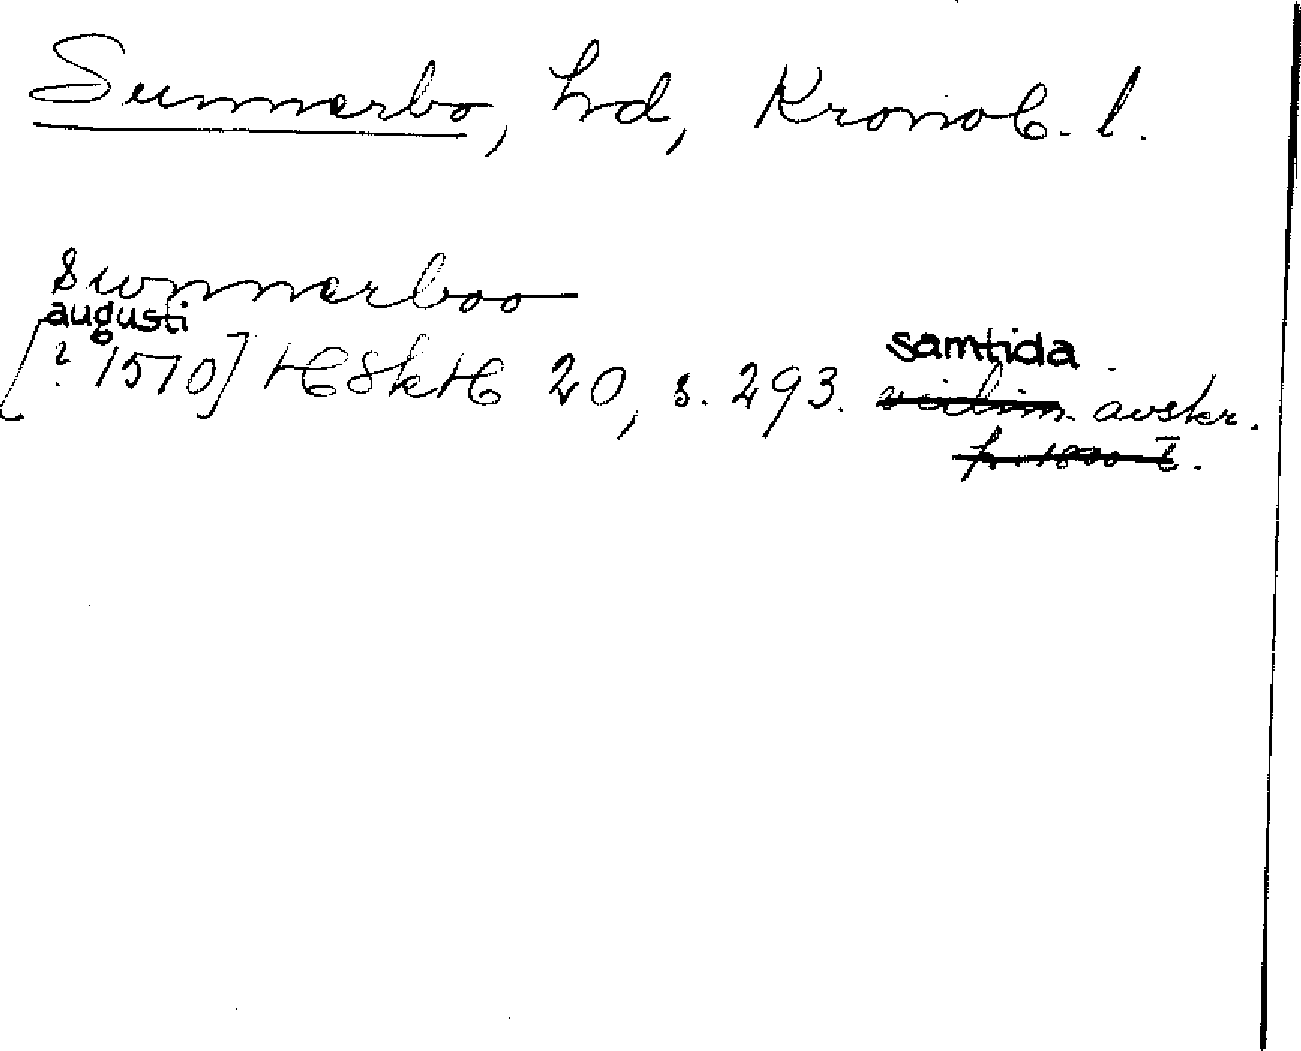 Sunnerbo, hd, Kronob. l.
Swnnerboo
augusti
[? 1570] HSkH 20, s. 293. samtida
vidim. avskr.
fr. 1800 t.